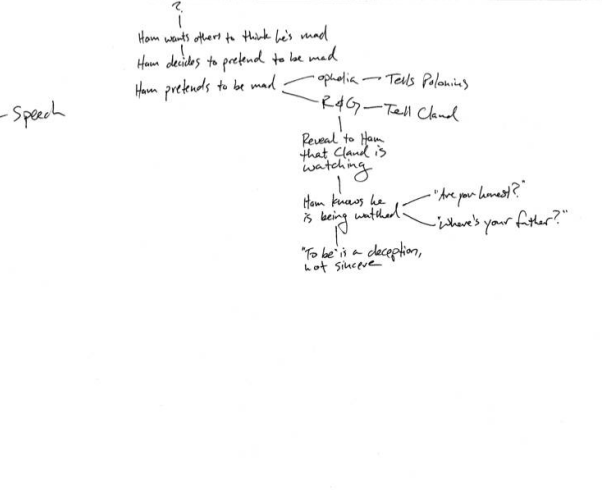 ?
Ham wants others to think he's mad
Ham decides to pretend to be mad
Ham pretends to be mad
Ophelia — Tells Polonius
R&G — Tell Claud
- Speech
Reveal to Ham
that Claud is
watching
Ham knows he
is being watched
"Are you honest?"
"Where's your father?"
"To be" is a deception,
not sincere